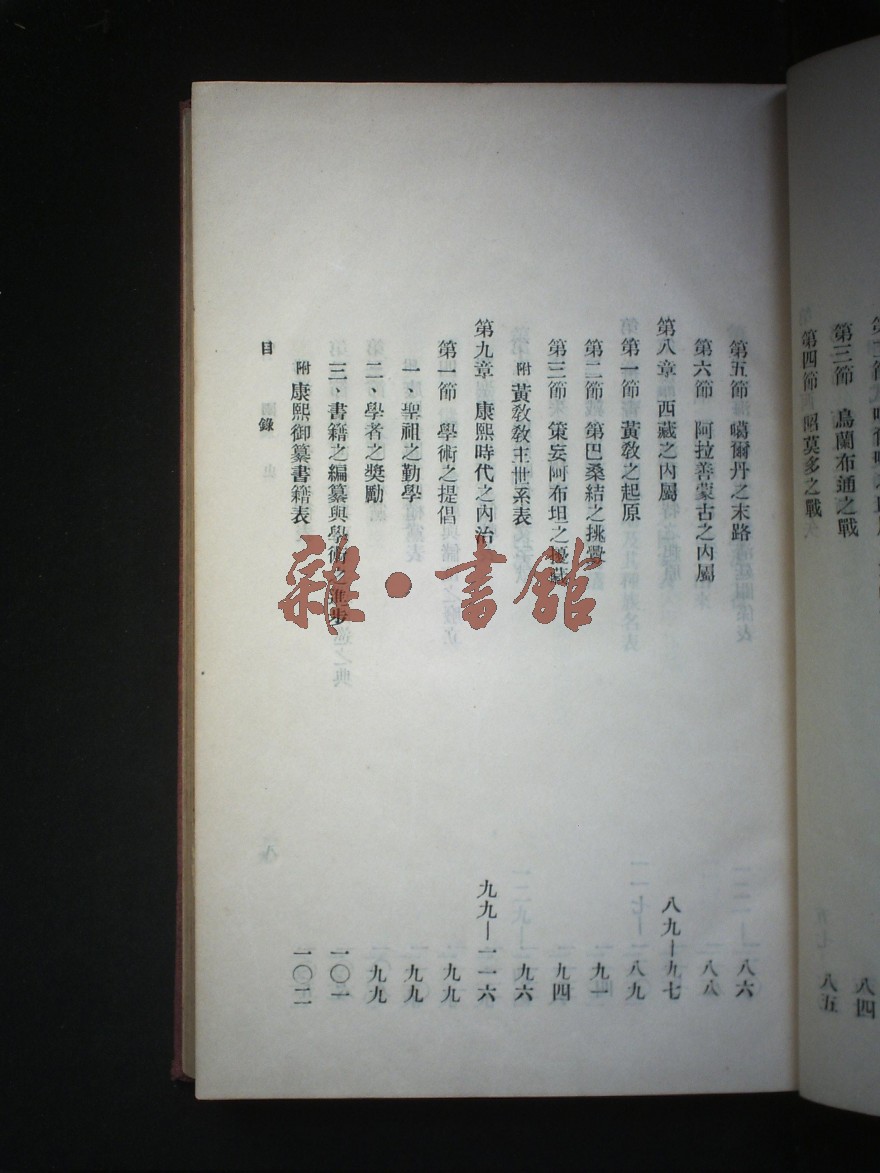 第三節　烏蘭布通之戰　八四
第四節　昭莫多之戰　八五
第五節　噶爾丹之末路　八六
第六節　阿拉善蒙古之內屬　八八
第八章　西藏之內屬　八九—九七
第一節　黃教之起原　八九
第二節　第巴桑結之挑釁　九一
第三節　策妄阿布坦之擾藏　九四
附　黃教教主世系表　九六
第九章　康熙時代之內治　九九—一一六
第一節　學術之提倡　九九
一、聖祖之勤學　九九
二、學者之獎勵　九九
三、書籍之編纂與學術之進步　一〇一
附　康熙御纂書籍表　一〇二
目　錄
雜·書館